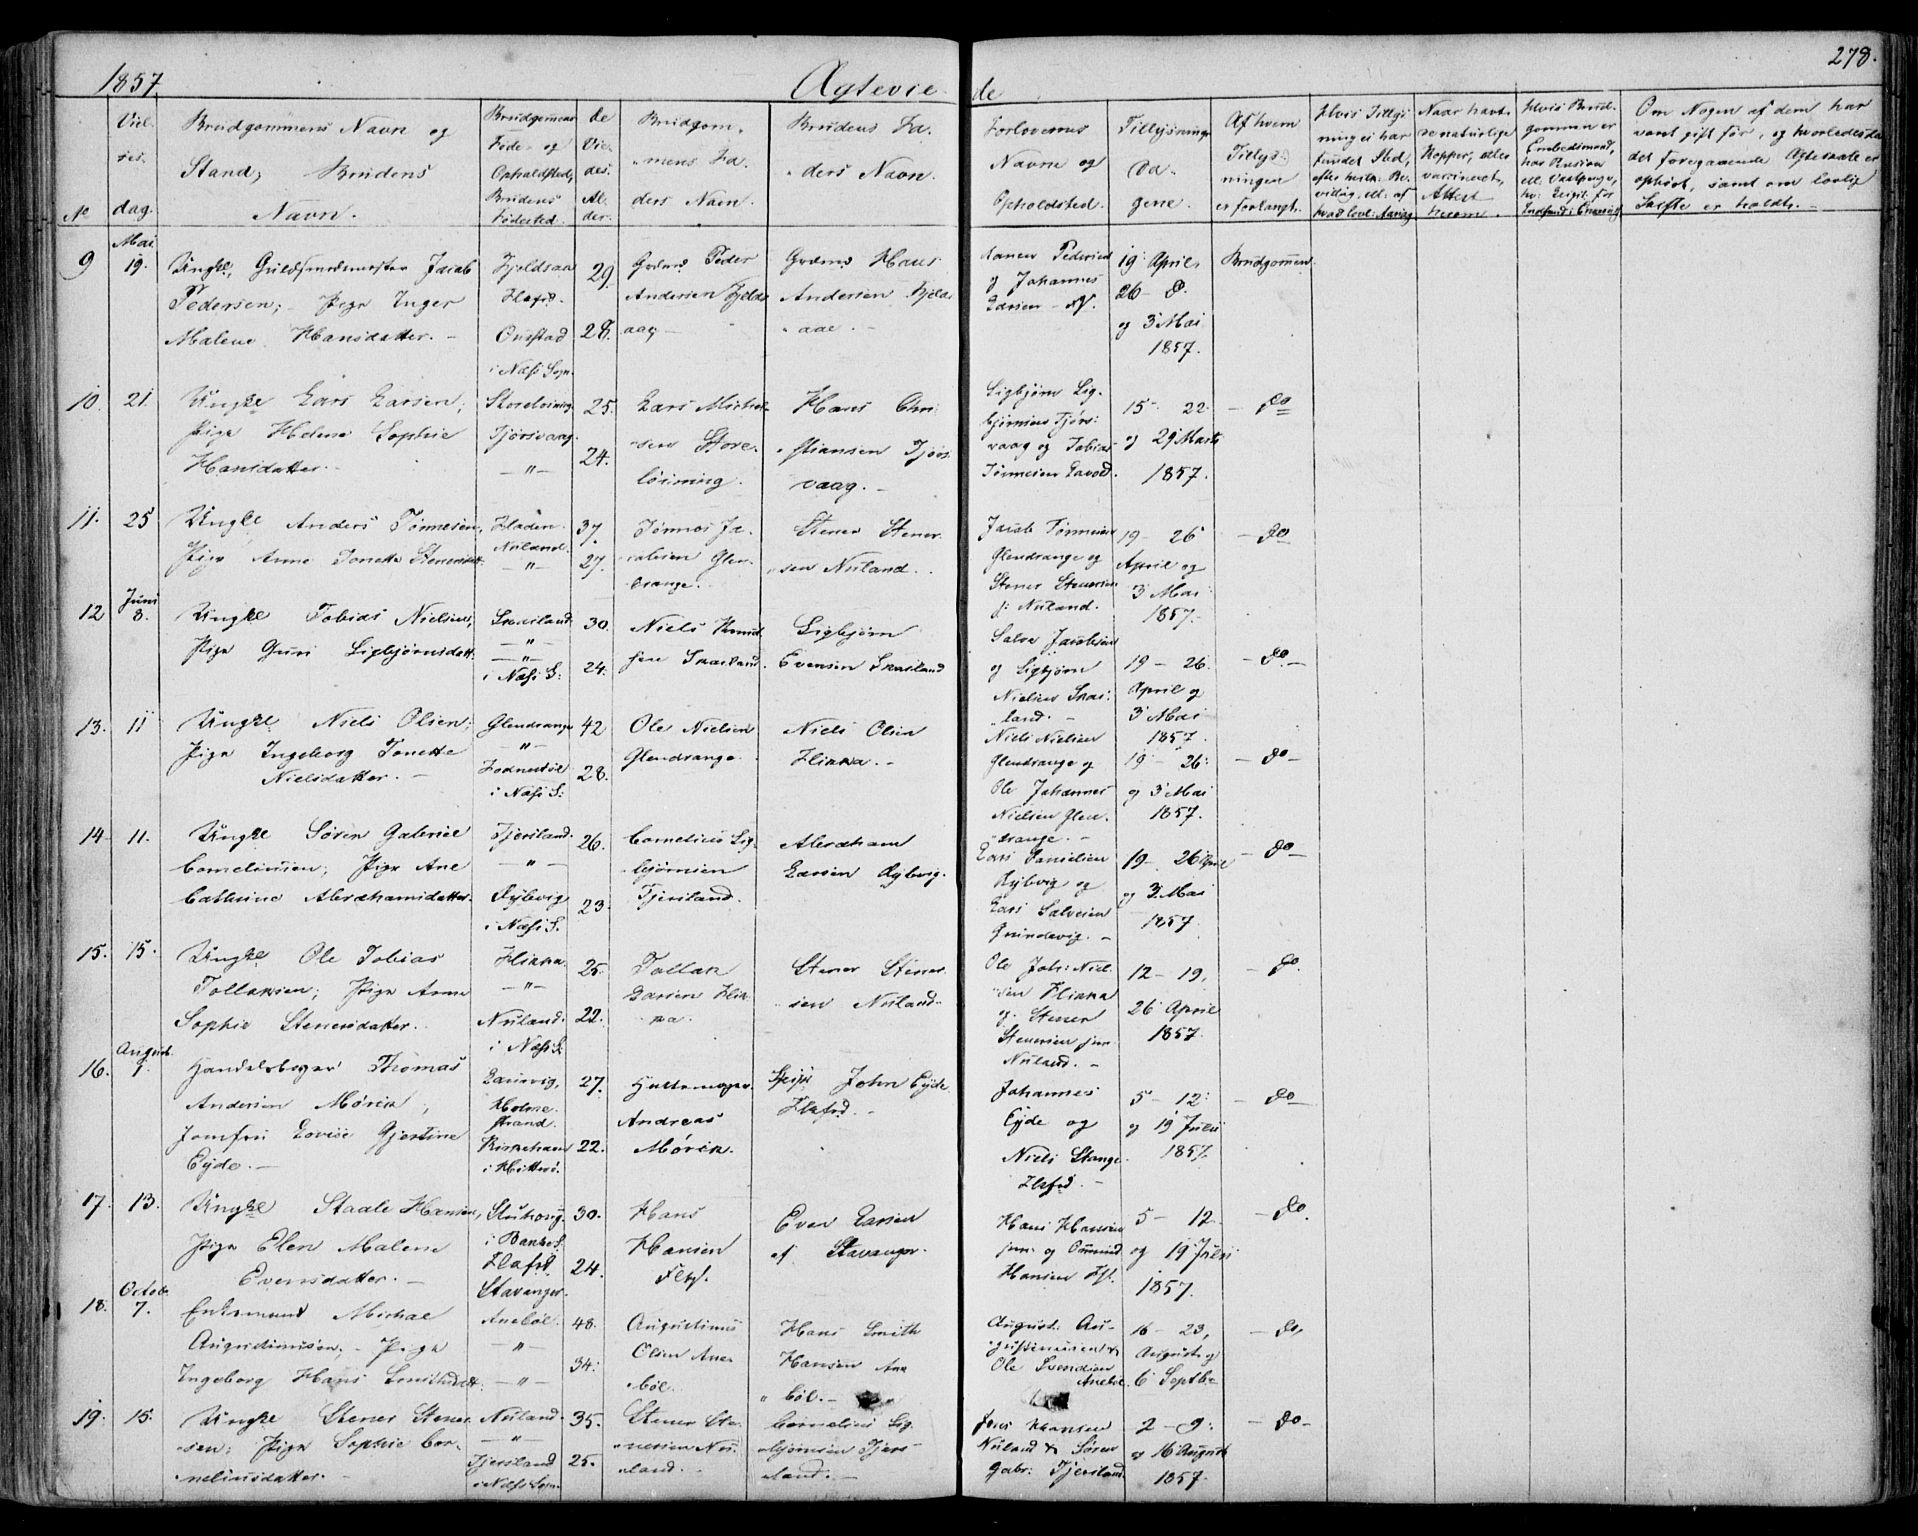 1857.
Ægtevie-de
278.
No
Viel-
ses-
dag.
Brudgommens Navn og
Stand; Brudens
Navn.
Brudgommens
Føde- og
Opholdsted,
Brudens
Fødested.
de
Vie-
des
Al-
der.
Brudgom-
mens Fa-
ders Navn.
Brudens Fa-
ders Navn.
Forlovernes
Navne og
Opholdsted.
Tillysnings-
Da-
gene.
Af hvem
Tillys-
ningen
er forlangt.
Hvis Tillys-
ning ei har
fundet Sted,
Naar havt
de naturlige
Kopper, eller
vaccineret,
Attest
herom.
Hvis Brud-
gommen er
Embedsmand,
har Pension
Om Nogen af dem har
været gift før, og hvorledes da
det foregaaende Ægteskab er
ophört, samt om lovlig
Skifte er holdt.
9
Mai
19.
Ungk. Guldsmedmester Jacob
Pedersen; Pige Inger
Malene Hansdatter.
Fjeldsaa
Flefd.
Onstad
i Næss Sogn
29.
28.
Grdmd Peder
Andersen Fjelds-
aae
Grdmd Hans
Andersen Fjelds-
aae.
Pedersen
og Johannes
Larsen
19 April,
26 - do.
og 3 Mai
1857.
Brudgommen
10.
21.
Ungke Lars Larsen;
Pige Helene Sophie
Hansdatter.
Storeløining
Tjørsvaag
— " —
25.
24.
Lars Michel-
sen Store-
løining.
Hans Chri-
stiansen Tjørs-
vaag.
Sigbjørn Sig-
bjørnsen Tjørs-
vaag og Tobias
Tønnesen
15 - 22
og 29 Marts
1857.
— do
11.
25
Ungke Anders Tønnesen,
Pige Anne Tonette Stenersdatt.
Fladen.
Nuland.
— " —
37.
27.
Tønnes Ja-
cobsen Glen-
drange.
Stener Stener-
sen Nuland.
Jacob Tønnesen
Glendrange og
Stener Stenersen
j: Nuland.
19 - 26
April og
3 Mai
1857.
— do
12
Juni
8.
Ungke Tobias Nielsen,
Pige Guri Sigbjørnsdatt.
Skarsland
— " —
— " —
i Næss S:
30.
24.
Niels Knud-
sen Skarsland.
Sigbjørn
Evensen Skarsland
Salve Jacobsen
og Sigbjørn
Nielsen Skars-
land.
19 - 26.
April og
3 Mai
1857.
— do —
13.
11
Ungke Niels Olsen;
Pige Ingeborg Tonette
Nielsdatter.
Glendrange
— " —
i Næss S:
42
28.
Ole Nielsen
Glendrange.
Niels Olsen
Flikka.
Niels Nielsen
Glendrange og
Ole Johannes
Nielsen Glen-
drange.
19 - 26.
og 3 Mai
1857.
— do —
14
11.
Ungke Søren Gabriel
Corneliussen; Pige Ane
Cathrine Abrahamsdatter.
Tjersland.
— " —
Rylevig
i Næss S.
26.
23.
Cornelius Sig-
bjørnsen
Tjersland.
Abraham
Larsen Rylevig.
Lars Danielsen
Rylevig og
Lars Salvesen
Grindevig.
19 - 26 April
og 3. Mai
1857.
— do —
15.
15.
Ungke Ole Tobias
Tollaksen; Pige Anne
Sophie Stenersdatter.
Flikka.
— " —
Nuland.
i Næss S.
25.
22.
Tollak
Larsen Flik-
ka.
Stener Stener-
sen Nuland
Ole Joh: Niel-
sen Flikka
og Stener
Stenersen jun
Nuland.
12 - 19,
26 April
1857.
— do.
16.
August.
7.
Handelsborger Thomas
Andersen Mørck;
Jomfru Lovise Gjertine
Eyde.
Laurvig,
Holme-
strand.
Kirkehavn
i Hitterø.
27.
22.
Andreas
Mørck.
Skip. John Eyde
Flkfrd.
Johannes
Eyde og
Niels Stange
Flkfrd.
5 - 12.
og 19 Juli
1857.
— do —
17.
13.
Ungke Staale Hansen,
Pige Elen Malene
Evensdatter.
i Bakke S.
Flkfd
Stavanger.
30.
24.
Hans
Hansen
Flkf.
Even Larsen
af Stavanger.
Hans Hansen
jun: og Ommund
Hansen Fl.
5 - 12.
og 19 Juli
1857.
— do.
18.
Octobr.
7.
Enkemand Michal
Augustinussen; Pige
Ingeborg Hans Smithsdatt.
Anebøl.
— " —
— " —
48.
34.
Augustinus
Olsen Ane-
bøl.
Hans Smith
Hansen Ane-
bøl.
August: Au-
gustinussen &
Ole Svendsen
Anebøl.
16 - 23,
August og
6 Septbr
— do,
19.
15.
Ungke Stener Stener-
sen; Pige Sophie Cor-
neliusdatter.
Nuland.
— " —
Tjersland
i Næss Sogn
35.
25.
Stener Ste-
nersen Nu-
land.
Cornelius Sig-
bjørnsen Tjers-
land.
Jens Hansen
Nuland & Søren
Gabr: Tjersland.
2 - 9.
og 16 August
1857.
— do —